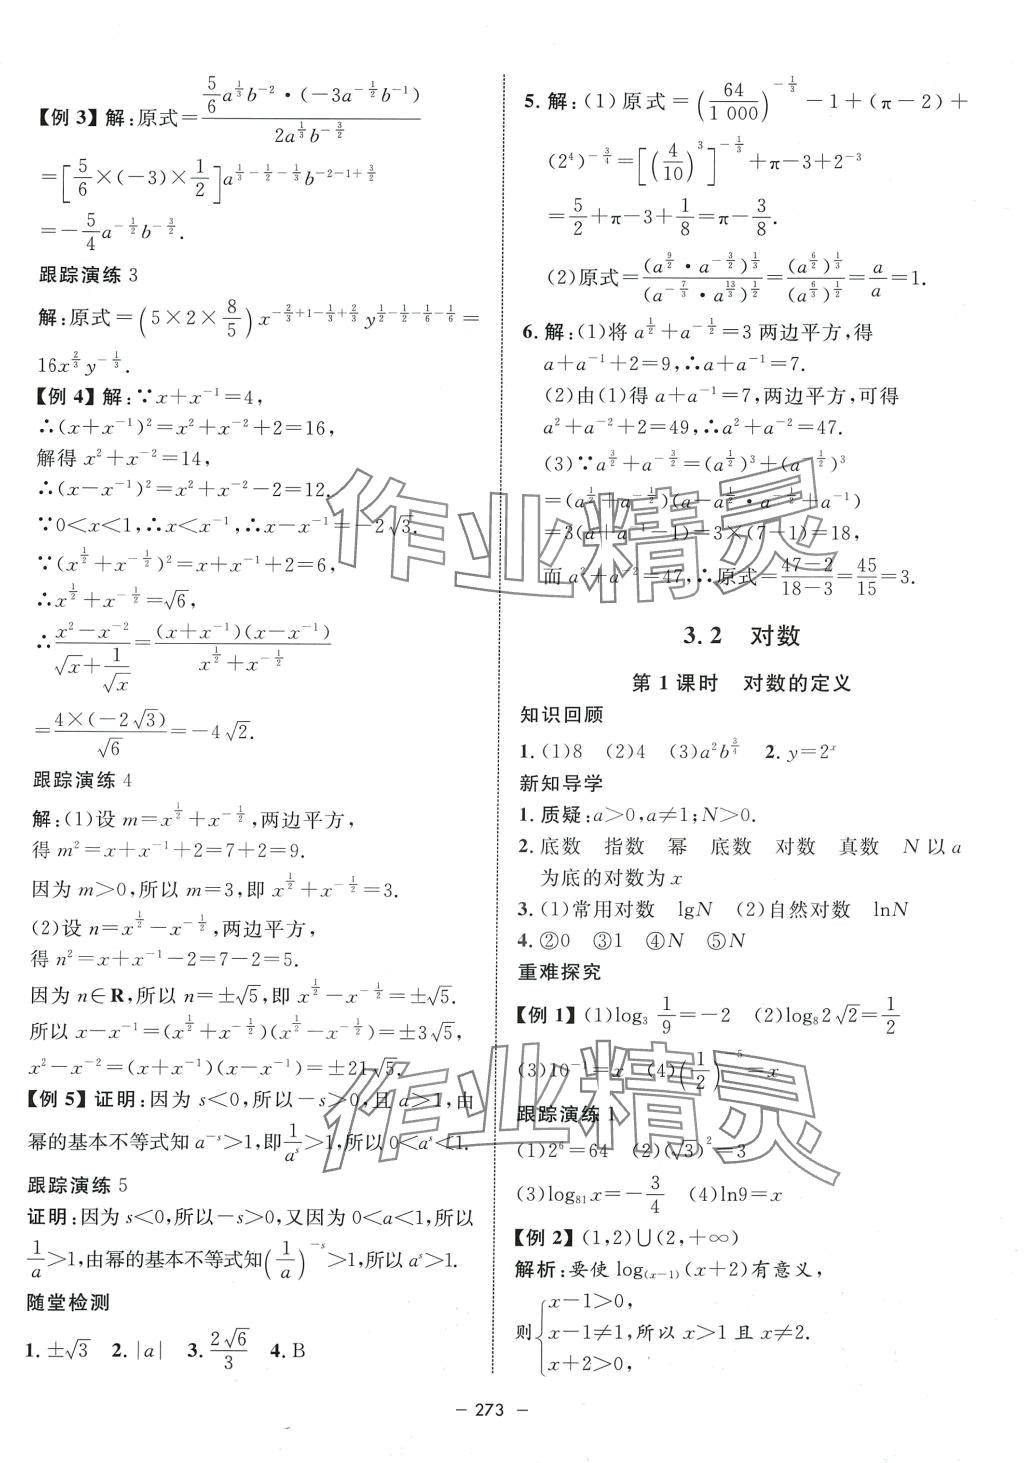 【例 3】解:原式=\frac{\frac{5}{6}a^{\frac{1}{3}}b^{-2}·(-3a^{-\frac{1}{2}}b^{-1})}{2a^{\frac{1}{3}}b^{-\frac{3}{2}}}
=[\frac{5}{6}×(-3)×\frac{1}{2}]a^{\frac{1}{3}-\frac{1}{2}-\frac{1}{3}}b^{-2-1+\frac{3}{2}}
=-\frac{5}{4}a^{-\frac{1}{2}}b^{-\frac{3}{2}}.
跟踪演练 3
解:原式=(5×2×\frac{8}{5})x^{-\frac{2}{3}+1-\frac{1}{3}+\frac{2}{3}}y^{\frac{1}{2}-\frac{1}{2}-\frac{1}{6}-\frac{1}{6}}=
16x^{\frac{2}{3}}y^{-\frac{1}{3}}.
【例 4】解:∵x+x^{-1}=4,
∴(x+x^{-1})^2=x^2+x^{-2}+2=16,
解得 x^2+x^{-2}=14,
∴(x-x^{-1})^2=x^2+x^{-2}-2=12.
∵0<x<1,∴x<x^{-1},∴x-x^{-1}=-2\sqrt{3}.
∵(x^{\frac{1}{2}}+x^{-\frac{1}{2}})^2=x+x^{-1}+2=6,
∴x^{\frac{1}{2}}+x^{-\frac{1}{2}}=\sqrt{6},
∴\frac{x^2-x^{-2}}{\sqrt{x}+\frac{1}{\sqrt{x}}}=\frac{(x+x^{-1})(x-x^{-1})}{x^{\frac{1}{2}}+x^{-\frac{1}{2}}}
=\frac{4×(-2\sqrt{3})}{\sqrt{6}}=-4\sqrt{2}.
跟踪演练 4
解:(1)设 m=x^{\frac{1}{2}}+x^{-\frac{1}{2}},两边平方,
得 m^2=x+x^{-1}+2=7+2=9.
因为 m>0,所以 m=3,即 x^{\frac{1}{2}}+x^{-\frac{1}{2}}=3.
(2)设 n=x^{\frac{1}{2}}-x^{-\frac{1}{2}},两边平方,
得 n^2=x+x^{-1}-2=7-2=5.
因为 n∈R,所以 n=±\sqrt{5},即 x^{\frac{1}{2}}-x^{-\frac{1}{2}}=±\sqrt{5}.
所以 x-x^{-1}=(x^{\frac{1}{2}}+x^{-\frac{1}{2}})(x^{\frac{1}{2}}-x^{-\frac{1}{2}})=±3\sqrt{5},
x^2-x^{-2}=(x+x^{-1})(x-x^{-1})=±21\sqrt{5}.
【例 5】证明:因为 s<0,所以-s>0,且 a>1,由
幂的基本不等式知 a^{-s}>1,即\frac{1}{a^s}>1,所以 0<a^s<1.
跟踪演练 5
证明:因为 s<0,所以-s>0,又因为 0<a<1,所以
\frac{1}{a}>1,由幂的基本不等式知(\frac{1}{a})^{-s}>1,所以 a^s>1.
随堂检测
1.±\sqrt{3} 2.|a| 3.\frac{2\sqrt{6}}{3} 4.B
5.解:(1)原式=(\frac{64}{1 000})^{-\frac{1}{3}}-1+(π-2)+
(2^4)^{-\frac{3}{4}}=[(\frac{4}{10})^3]^{-\frac{1}{3}}+π-3+2^{-3}
=\frac{5}{2}+π-3+\frac{1}{8}=π-\frac{3}{8}.
(2)原式=\frac{(a^{\frac{9}{2}}·a^{-\frac{3}{2}})^{\frac{1}{3}}}{(a^{-\frac{7}{3}}·a^{\frac{13}{3}})^{\frac{1}{2}}}=\frac{(a^{\frac{6}{2}})^{\frac{1}{3}}}{(a^{\frac{6}{3}})^{\frac{1}{2}}}=\frac{a}{a}=1.
6.解:(1)将 a^{\frac{1}{2}}+a^{-\frac{1}{2}}=3 两边平方,得
a+a^{-1}+2=9,∴a+a^{-1}=7.
(2)由(1)得 a+a^{-1}=7,两边平方,可得
a^2+a^{-2}+2=49,∴a^2+a^{-2}=47.
(3)∵a^{\frac{3}{2}}+a^{-\frac{3}{2}}=(a^{\frac{1}{2}})^3+(a^{-\frac{1}{2}})^3
=(a^{\frac{1}{2}}+a^{-\frac{1}{2}})(a-a^{\frac{1}{2}}·a^{-\frac{1}{2}}+a^{-1})
=3(a+a^{-1}-1)=3×(7-1)=18,
而 a^2+a^{-2}=47,∴原式=\frac{47-2}{18-3}=\frac{45}{15}=3.
3.2 对数
第 1 课时 对数的定义
知识回顾
1.(1)8 (2)4 (3)a^2b^{\frac{3}{4}} 2.y=2^x
新知导学
1.质疑:a>0,a≠1;N>0.
2.底数 指数 幂 底数 对数 真数 N 以 a
为底的对数为 x
3.(1)常用对数 lgN (2)自然对数 lnN
4.②0 ③1 ④N ⑤N
重难探究
【例 1】(1)log_3\frac{1}{9}=-2 (2)log_8 2\sqrt{2}=\frac{1}{2}
(3)10^{-1}=x (4)(\frac{1}{2})^{-5}=x
跟踪演练 1
(1)2^6=64 (2)(\sqrt{3})^2=3
(3)log_{81}x=-\frac{3}{4} (4)ln9=x
【例 2】(1,2)∪(2,+∞)
解析:要使 log_{(x-1)}(x+2)有意义,
则{x-1>0,
x-1≠1,所以 x>1 且 x≠2.
x+2>0,
- 273 -
作业精灵
作业精灵